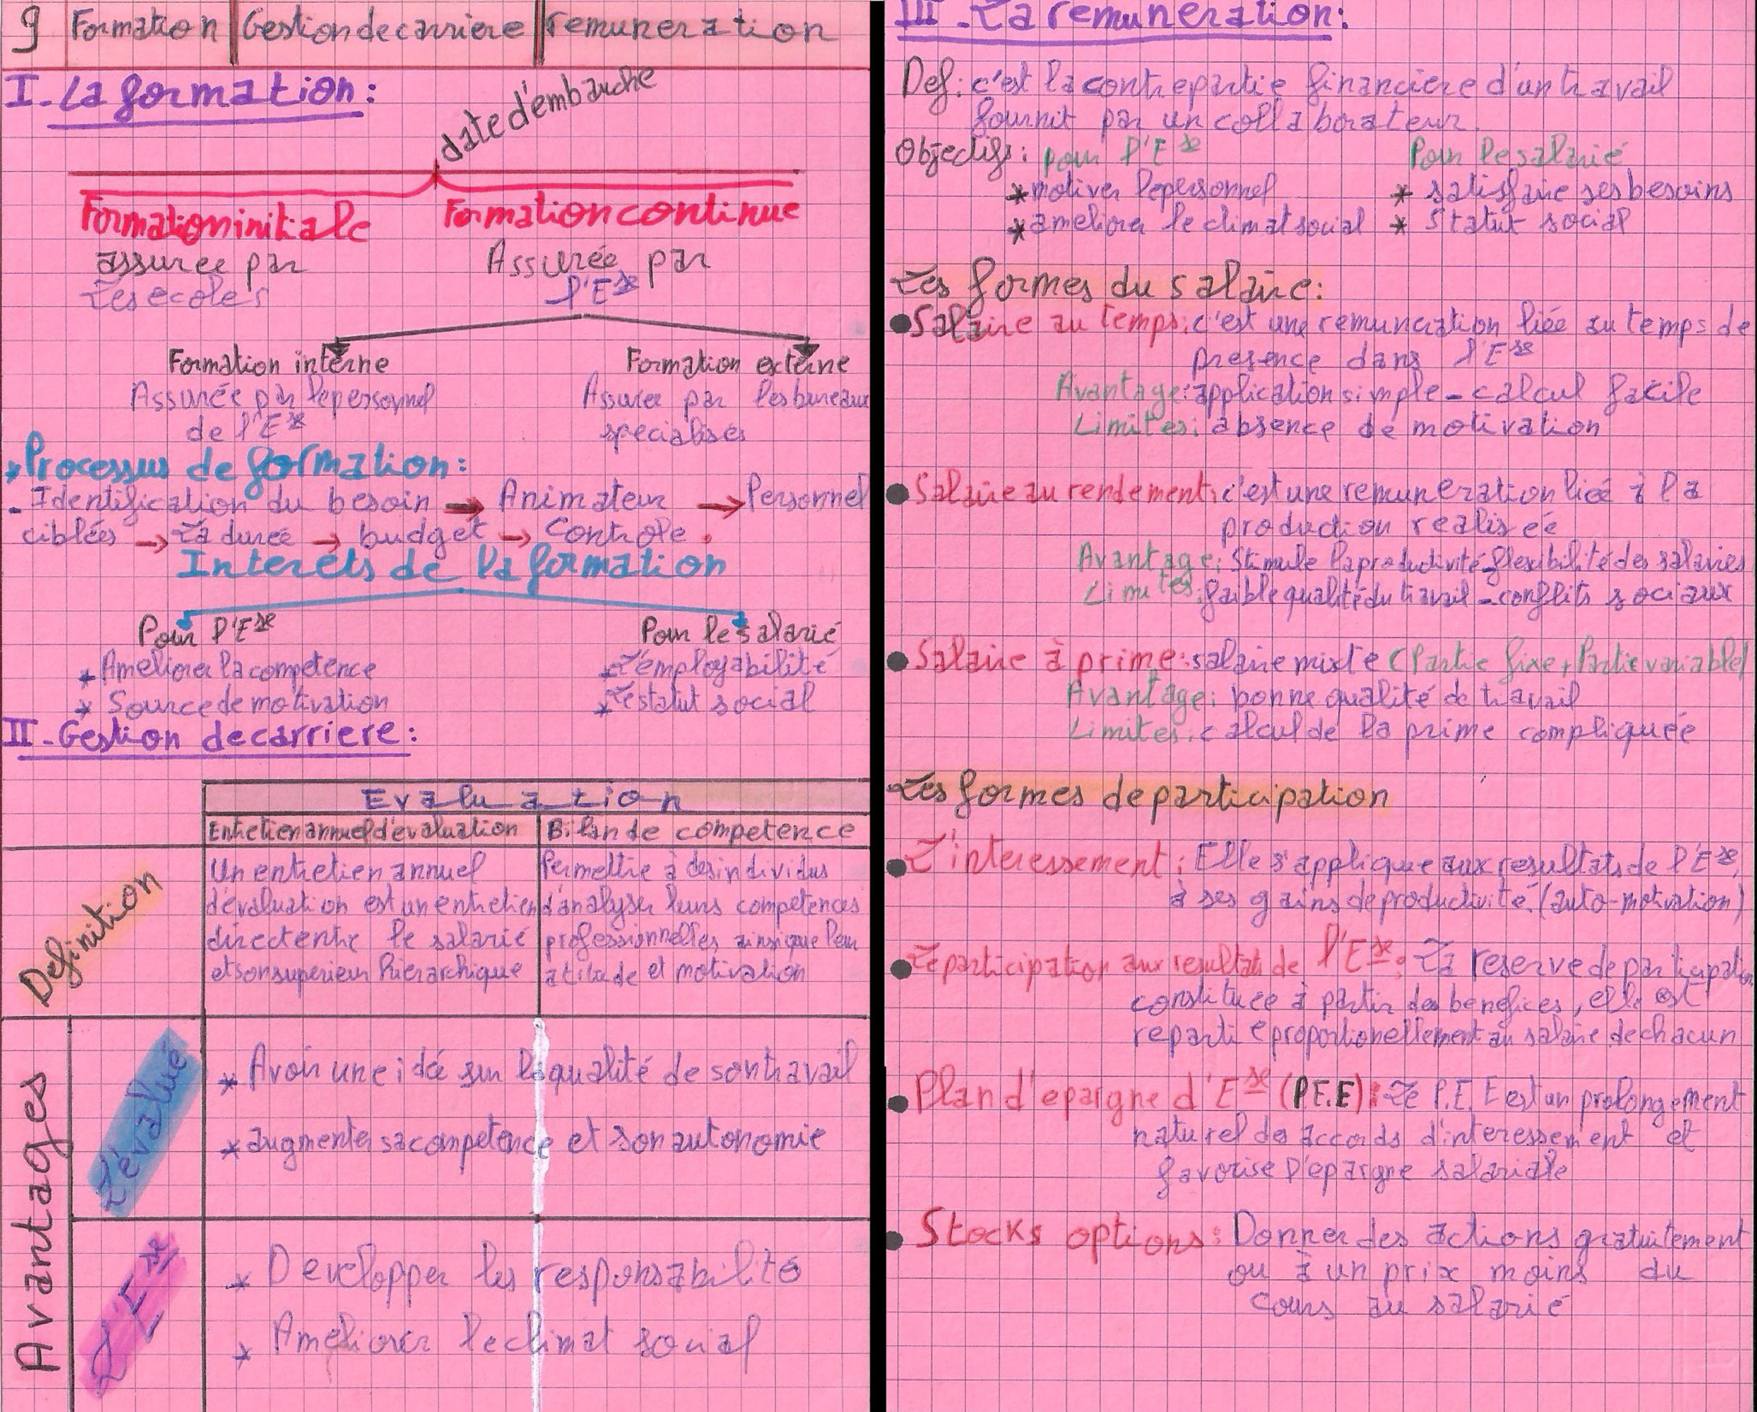 9 Formation Gestion de carriere remuneration
I-La formation:
date d'embauche
Formation initiale Formation continue
assuree par Assurée par
Les ecoles l'Ese
Formation interne Formation externe
Assurée par le personnel Assuree par les bureaux
de l'Ese specialises
*Processus de formation:
-Identification du besoin → Animateur → Personnel
ciblées → La durée → budget → Controle.
Interets de la formation
Pour l'Ese Pour le salarié
* Ameliorer la competence * L'employabilité
* Source de motivation * Le statut social
II-Gestion de carriere:
Evaluation
Entretien annuel d'evaluation Bilan de competence
Definition
Un entretien annuel Permettre à des individus
d'évaluation est un entretien d'analyser leurs competences
direct entre le salarié professionnelles ainsi que leur
et son superieur hierarchique atitude et motivation
Avantages
L'évalué
* Avoir une idée sur la qualité de son travail
* augmenter sa competence et son autonomie
L'Ese
* Developper les responsabilité
* Ameliorer le climat social
III-La remuneration:
Def: c'est la contrepartie financiere d'un travail
fournit par un collaborateur.
Objectifs: pour l'Ese Pour le salarié
* motiver le personnel * satisfaire ses besoins
* ameliorer le climat social * Statut social
Les formes du salaire:
● Salaire au temps: c'est une remuneration liée au temps de
presence dans l'Ese
Avantage: application simple - calcul facile
Limites: absence de motivation
● Salaire au rendement: c'est une remuneration lieé à la
production realisée
Avantage: Stimule la productivité-flexibilité des salaries
Limites: faible qualité du travail - conflits sociaux
● Salaire à prime: salaire mixte (Partie fixe + Partie variable)
Avantage: bonne qualité de travail
Limites: calcul de la prime compliquée
Les formes de participation
● L'interessement: Elle s'applique aux resultats de l'Ese,
à ses gains de productivité. (auto-motivation)
● Le participation aux resultats de l'Ese: La reserve de participation
constituée à partir des benefices, elle est
repartie proportionellement au salaire de chacun
● Plan d'epargne d'Ese (P.E.E): Le P.E.E est un prolongement
naturel des accords d'interessement et
favorise l'epargne salariale
● Stocks options: Donner des actions gratuitement
ou à un prix moins du
cours au salarié